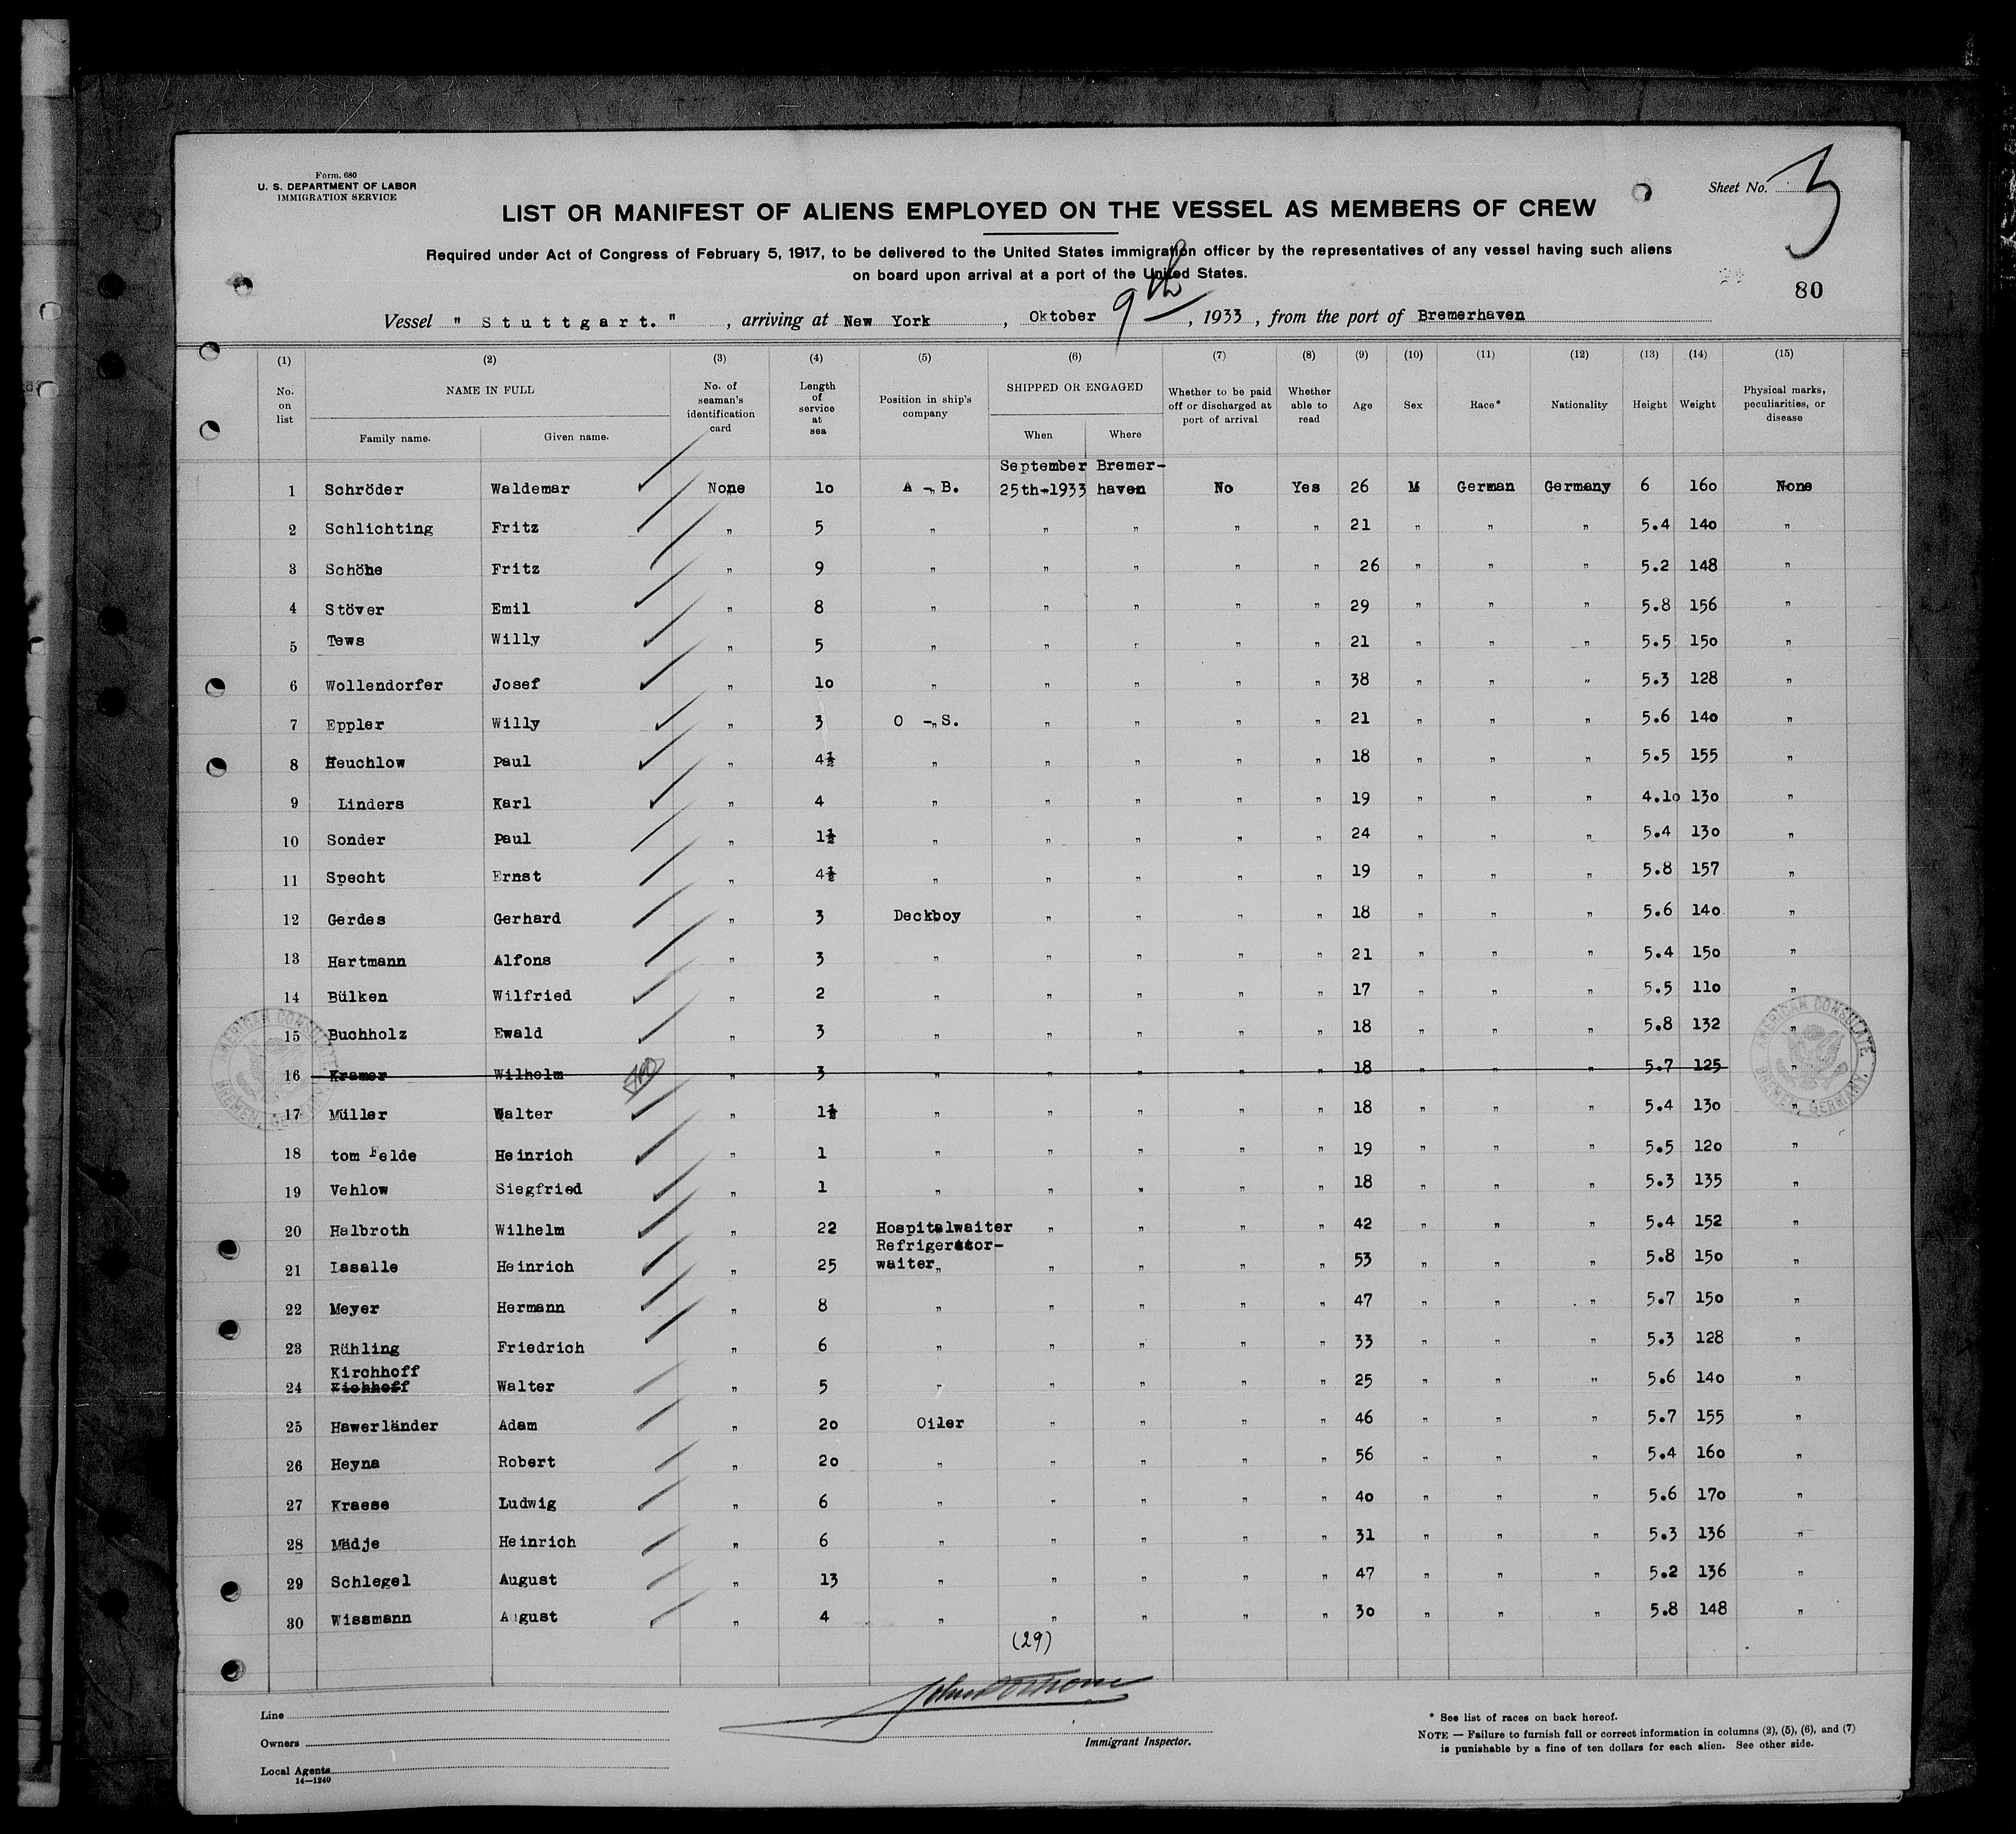 Form. 680
U. S. DEPARTMENT OF LABOR
IMMIGRATION SERVICE
Sheet No. 3
LIST OR MANIFEST OF ALIENS EMPLOYED ON THE VESSEL AS MEMBERS OF CREW
Required under Act of Congress of February 5, 1917, to be delivered to the United States immigration officer by the representatives of any vessel having such aliens
on board upon arrival at a port of the United States.
80
Vessel " Stuttgart. " , arriving at New York , Oktober 9th , 1933 , from the port of Bremerhaven
(1) (2) (3) (4) (5) (6) (7) (8) (9) (10) (11) (12) (13) (14) (15)
No. on list NAME IN FULL Family name. Given name. No. of seaman's identification card Length of service at sea Position in ship's company SHIPPED OR ENGAGED When Where Whether to be paid off or discharged at port of arrival Whether able to read Age Sex Race* Nationality Height Weight Physical marks, peculiarities, or disease
September Bremer-
1 Schröder Waldemar None 10 A -„ B. 25th-1933 haven No Yes 26 M German Germany 6 160 None
2 Schlichting Fritz „ 5 „ „ „ „ „ 21 „ „ „ 5.4 140 „
3 Schöhe Fritz „ 9 „ „ „ „ „ 26 „ „ „ 5.2 148 „
4 Stöver Emil „ 8 „ „ „ „ „ 29 „ „ „ 5.8 156 „
5 Tews Willy „ 5 „ „ „ „ „ 21 „ „ „ 5.5 150 „
6 Wollendorfer Josef „ 10 „ „ „ „ „ 38 „ „ „ 5.3 128 „
7 Eppler Willy „ 3 O -„ S. „ „ „ „ 21 „ „ „ 5.6 140 „
8 Heuchlow Paul „ 4½ „ „ „ „ „ 18 „ „ „ 5.5 155 „
9 Linders Karl „ 4 „ „ „ „ „ 19 „ „ „ 4.10 130 „
10 Sonder Paul „ 1½ „ „ „ „ „ 24 „ „ „ 5.4 130 „
11 Specht Ernst „ 4½ „ „ „ „ „ 19 „ „ „ 5.8 157 „
12 Gerdes Gerhard „ 3 Deckboy „ „ „ „ 18 „ „ „ 5.6 140 „
13 Hartmann Alfons „ 3 „ „ „ „ „ 21 „ „ „ 5.4 150 „
14 Bülken Wilfried „ 2 „ „ „ „ „ 17 „ „ „ 5.5 110 „
15 Buchholz Ewald „ 3 „ „ „ „ „ 18 „ „ „ 5.8 132 „
16 Kramer Wilhelm „ 3 „ „ „ „ „ 18 „ „ „ 5.7 125 „
17 Müller Walter „ 1½ „ „ „ „ „ 18 „ „ „ 5.4 130 „
18 tom Felde Heinrich „ 1 „ „ „ „ „ 19 „ „ „ 5.5 120 „
19 Vehlow Siegfried „ 1 „ „ „ „ „ 18 „ „ „ 5.3 135 „
20 Halbroth Wilhelm „ 22 Hospitalwaiter „ „ „ „ 42 „ „ „ 5.4 152 „
Refrigerator-
21 Lasalle Heinrich „ 25 waiter„ „ „ „ „ 53 „ „ „ 5.8 150 „
22 Meyer Hermann „ 8 „ „ „ „ „ 47 „ „ „ 5.7 150 „
23 Rühling Friedrich „ 6 „ „ „ „ „ 33 „ „ „ 5.3 128 „
Kirchhoff
24 Kichhoff Walter „ 5 „ „ „ „ „ 25 „ „ „ 5.6 140 „
25 Hawerländer Adam „ 20 Oiler „ „ „ „ 46 „ „ „ 5.7 155 „
26 Heyna Robert „ 20 „ „ „ „ „ 56 „ „ „ 5.4 160 „
27 Kraese Ludwig „ 6 „ „ „ „ „ 40 „ „ „ 5.6 170 „
28 Mädje Heinrich „ 6 „ „ „ „ „ 31 „ „ „ 5.3 136 „
29 Schlegel August „ 13 „ „ „ „ „ 47 „ „ „ 5.2 136 „
30 Wissmann August „ 4 „ „ „ „ „ 30 „ „ „ 5.8 148 „
AMERICAN CONSULATE
BREMEN, GERMANY.
AMERICAN CONSULATE
BREMEN, GERMANY.
(29)
Line
Owners
Local Agents
14—1240
Immigrant Inspector.
* See list of races on back hereof.
NOTE — Failure to furnish full or correct information in columns (2), (5), (6), and (7)
is punishable by a fine of ten dollars for each alien. See other side.